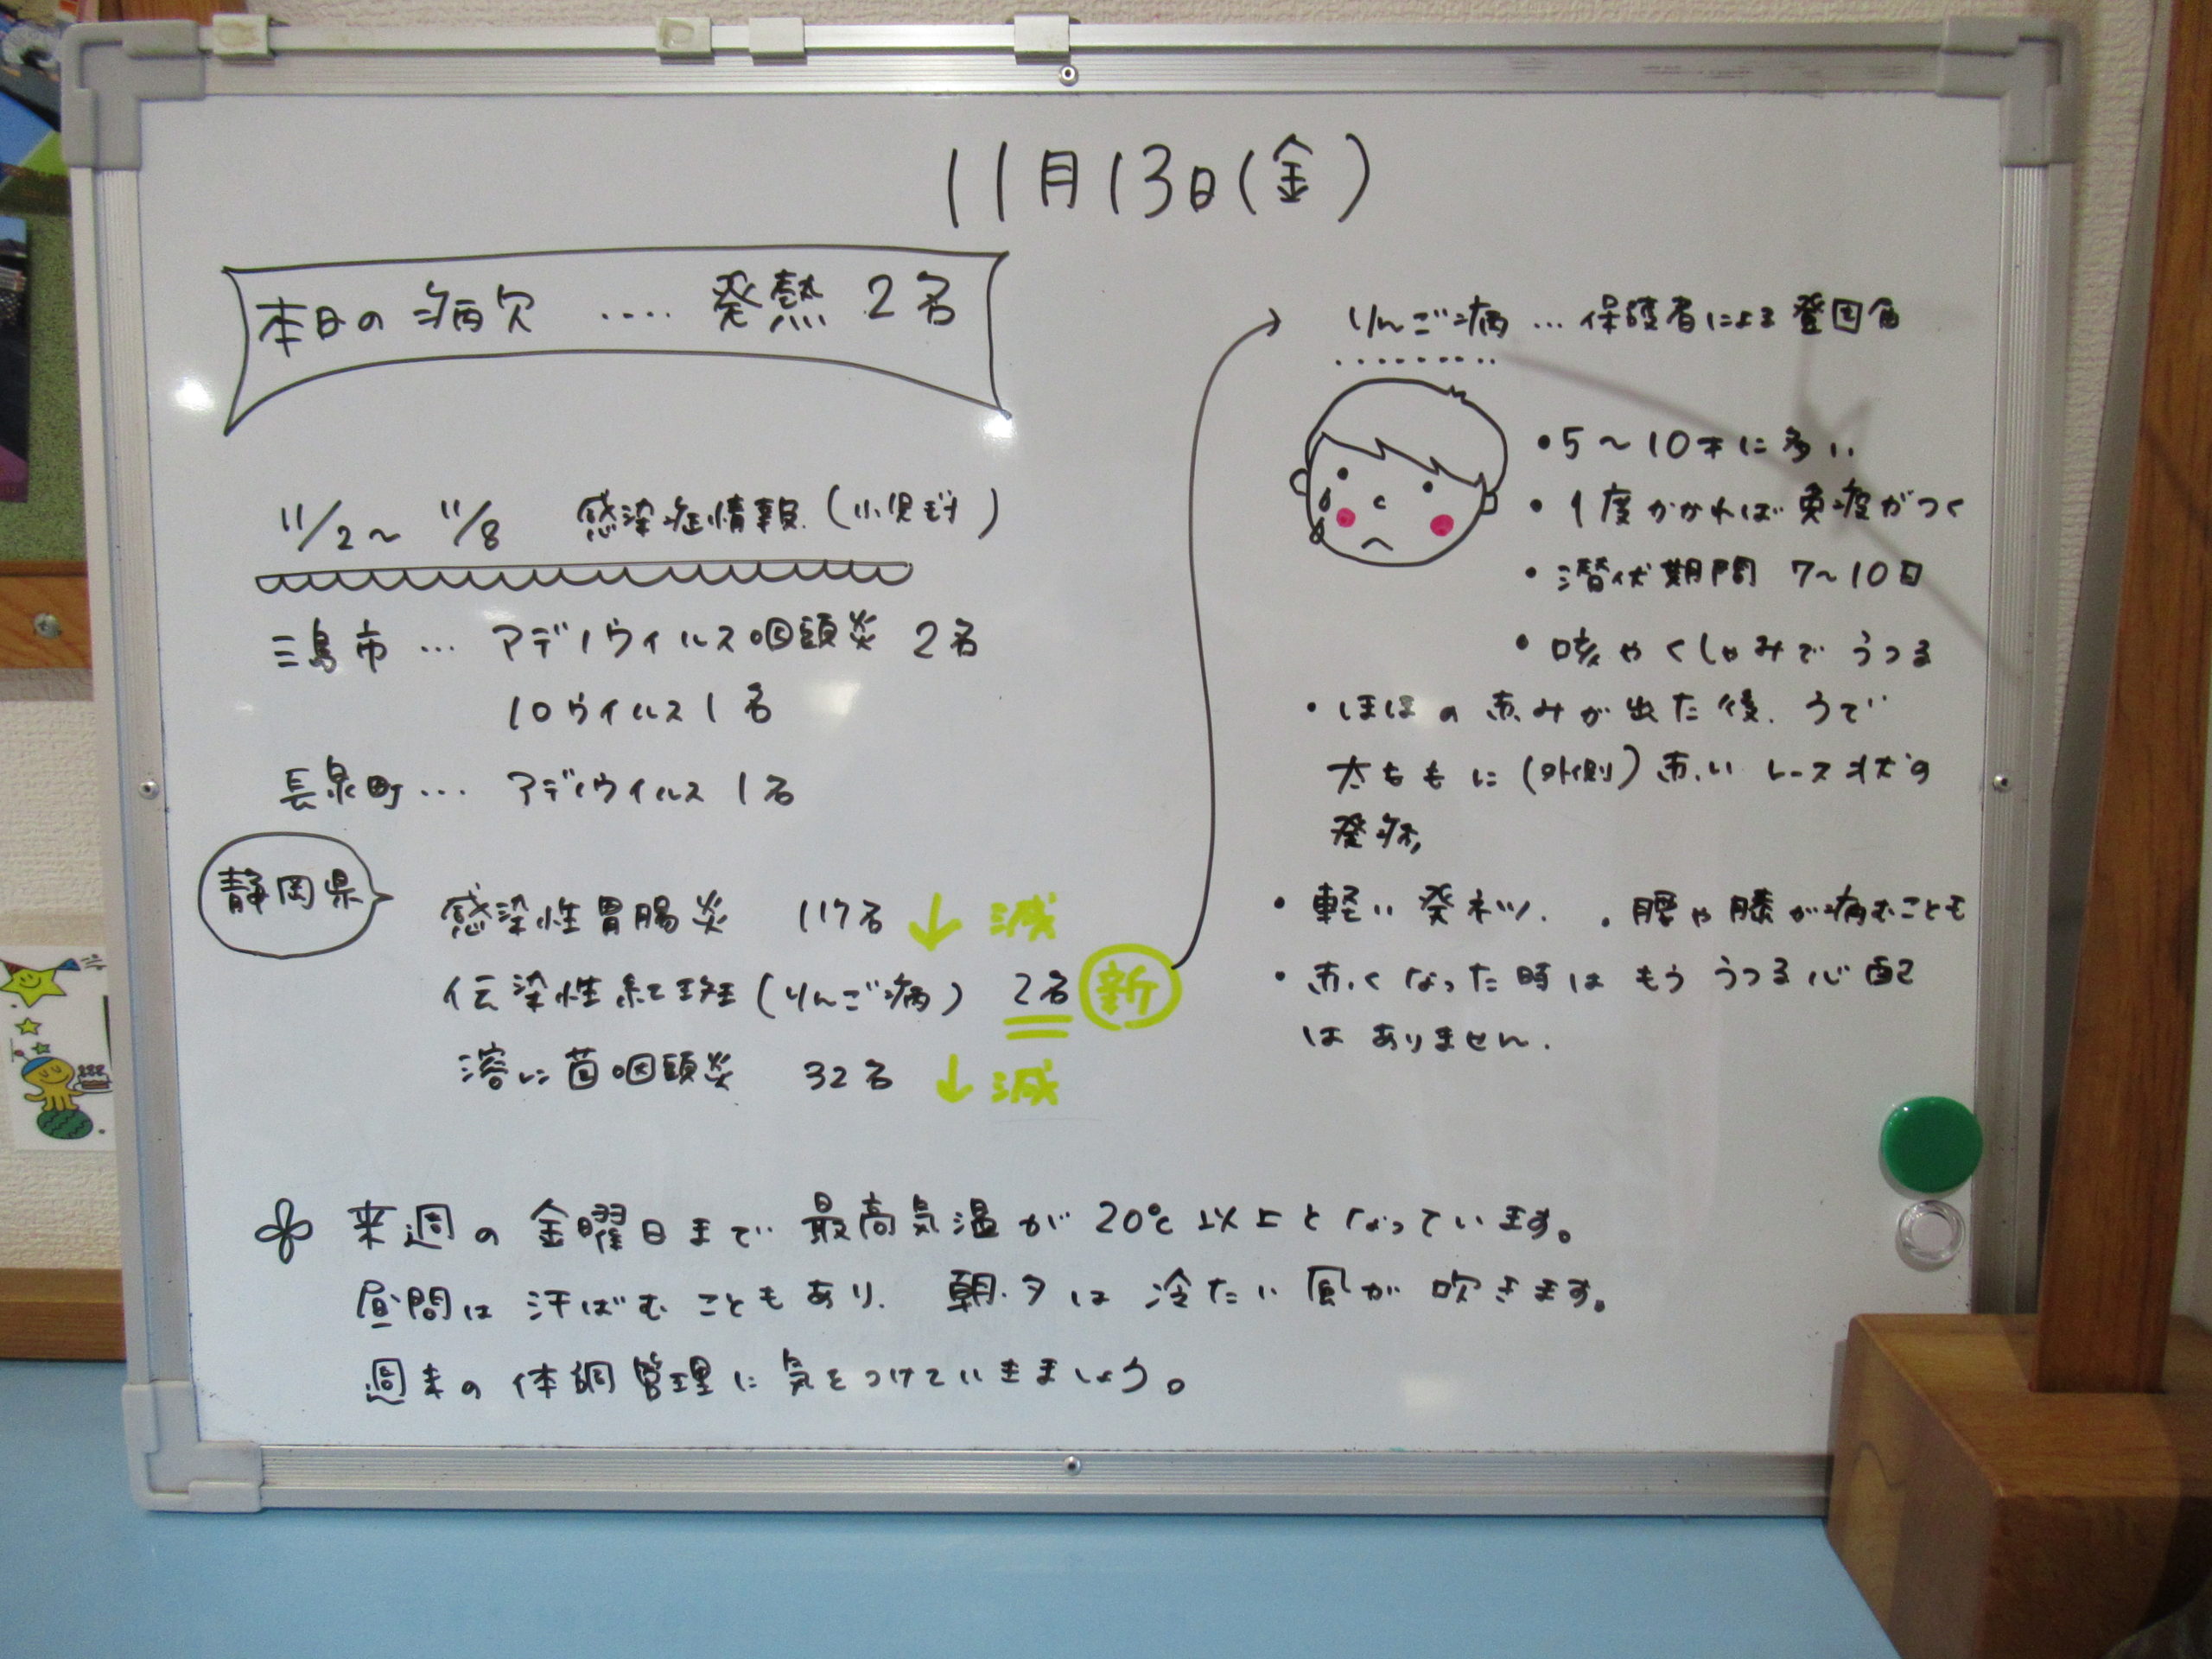 11月13日(金)
本日の病欠 ‥‥ 発熱 2名
11/2～ 11/8 感染症情報(小児も才)
三島市 … アデノウィルス咽頭炎 2名
10ウイルス 1名
長泉町 … アデノウイルス 1名
静岡県
感染性胃腸炎 117名 ↓ 減
伝染性紅斑(りんご病) 2名 新
溶レン菌咽頭炎 32名 ↓ 減
りんご病 … 保護者による登園
・5～10才に多い
・1度かかれば免疫がつく
・潜伏期間 7～10日
・咳やくしゃみでうつる
・ほほの赤みが出た後、うで
太ももに(外側)赤いレース状の
発疹
・軽い発ネツ. ・腰や膝が病むことも
・赤くなった時はもううつる心配
はありません.
来週の金曜日まで最高気温が20℃以上となっています。
昼間は汗ばむこともあり、朝・夕は冷たい風が吹きます。
週末の体調管理に気をつけていきましょう。